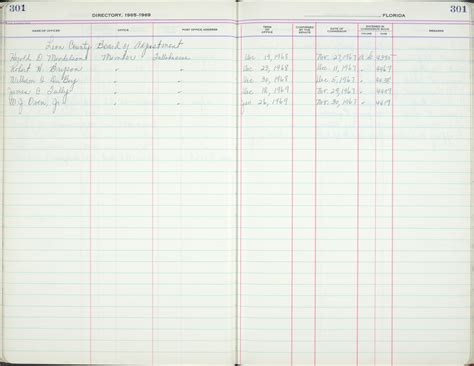 301
DIRECTORY, 1965-1969
FLORIDA
301
NAME OF OFFICER OFFICE POST OFFICE ADDRESS TERM OF OFFICE CONFIRMED BY SENATE DATE OF COMMISSION RECORDED IN COMMISSION BOOK VOLUME PAGE REMARKS
Leon County Board of Adjustment
Harold D. Member Tallahassee 19, 1968 Nov. 27, 1967
Robert H. " " Dec. 22, 1968 Dec. 11, 1967 " 4469
William " " Dec. 30, 1968 Dec. 5, 1967 "
James C. Tully " " Dec. 18, 1969 Nov. 29, 1967 " 4409
M. J. Owen, Jr. " " Jan. 26, 1969 Nov. 30, 1967 " 4419